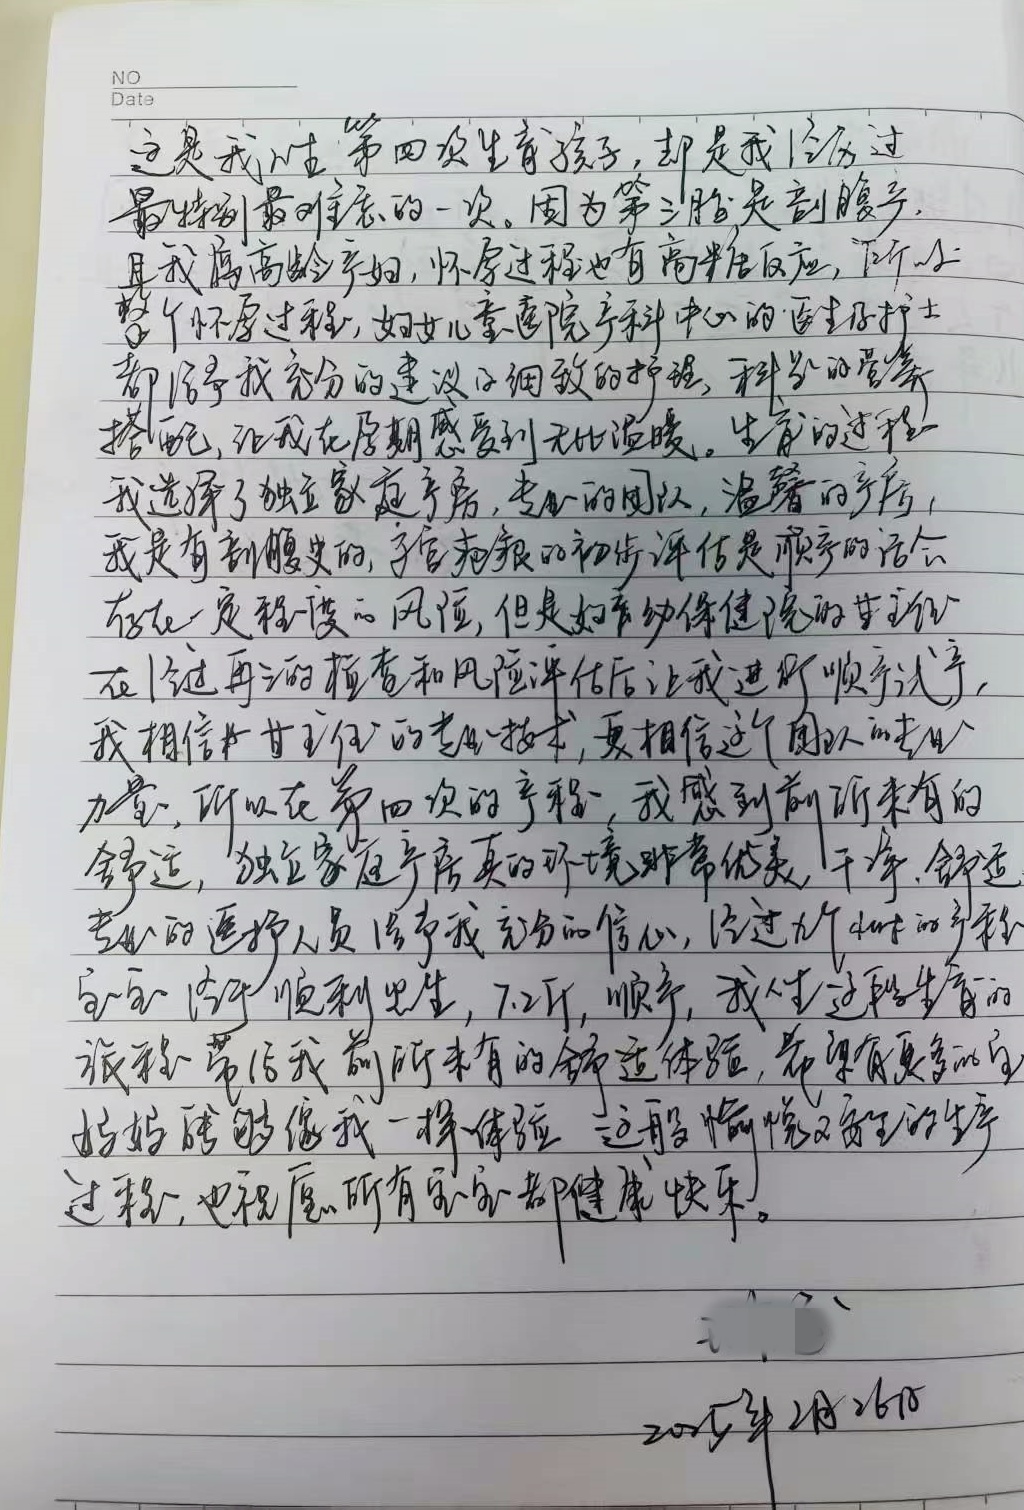 NO
Date
这是我人生第四次生育孩子,却是我经历过
最特别最难忘的一次。因为第三胎是剖腹产,
且我属高龄产妇,怀孕过程也有高糖反应,所以
整个怀孕过程,妇女儿童医院产科中心的医生及护士
都给予我充分的建议及细致的护理,科学的营养
搭配,让我在孕期感受到无比温暖。生育的过程
我选择了独立家庭产房,专业的团队,温馨的产房,
我是有剖腹史的,子宫疤痕的初步评估是顺产的话会
存在一定程度的风险,但是妇幼保健院的甘主任
在经过再三的检查和风险评估后让我进行顺产试产,
我相信甘主任的专业技术,更相信这个团队的专业
力量,所以在第四次的产程,我感到前所未有的
舒适,独立家庭产房真的环境非常优美,干净,舒适
专业的医护人员给予我充分的信心,经过九个小时的产程
宝宝终于顺利出生,7.2斤,顺产,我人生这段生育的
旅程带给我前所未有的舒适体验,希望有更多的宝
妈妈能够像我一样体验这般愉悦又安全的生产
过程,也祝愿所有宝宝都健康快乐。
2025年2月26日